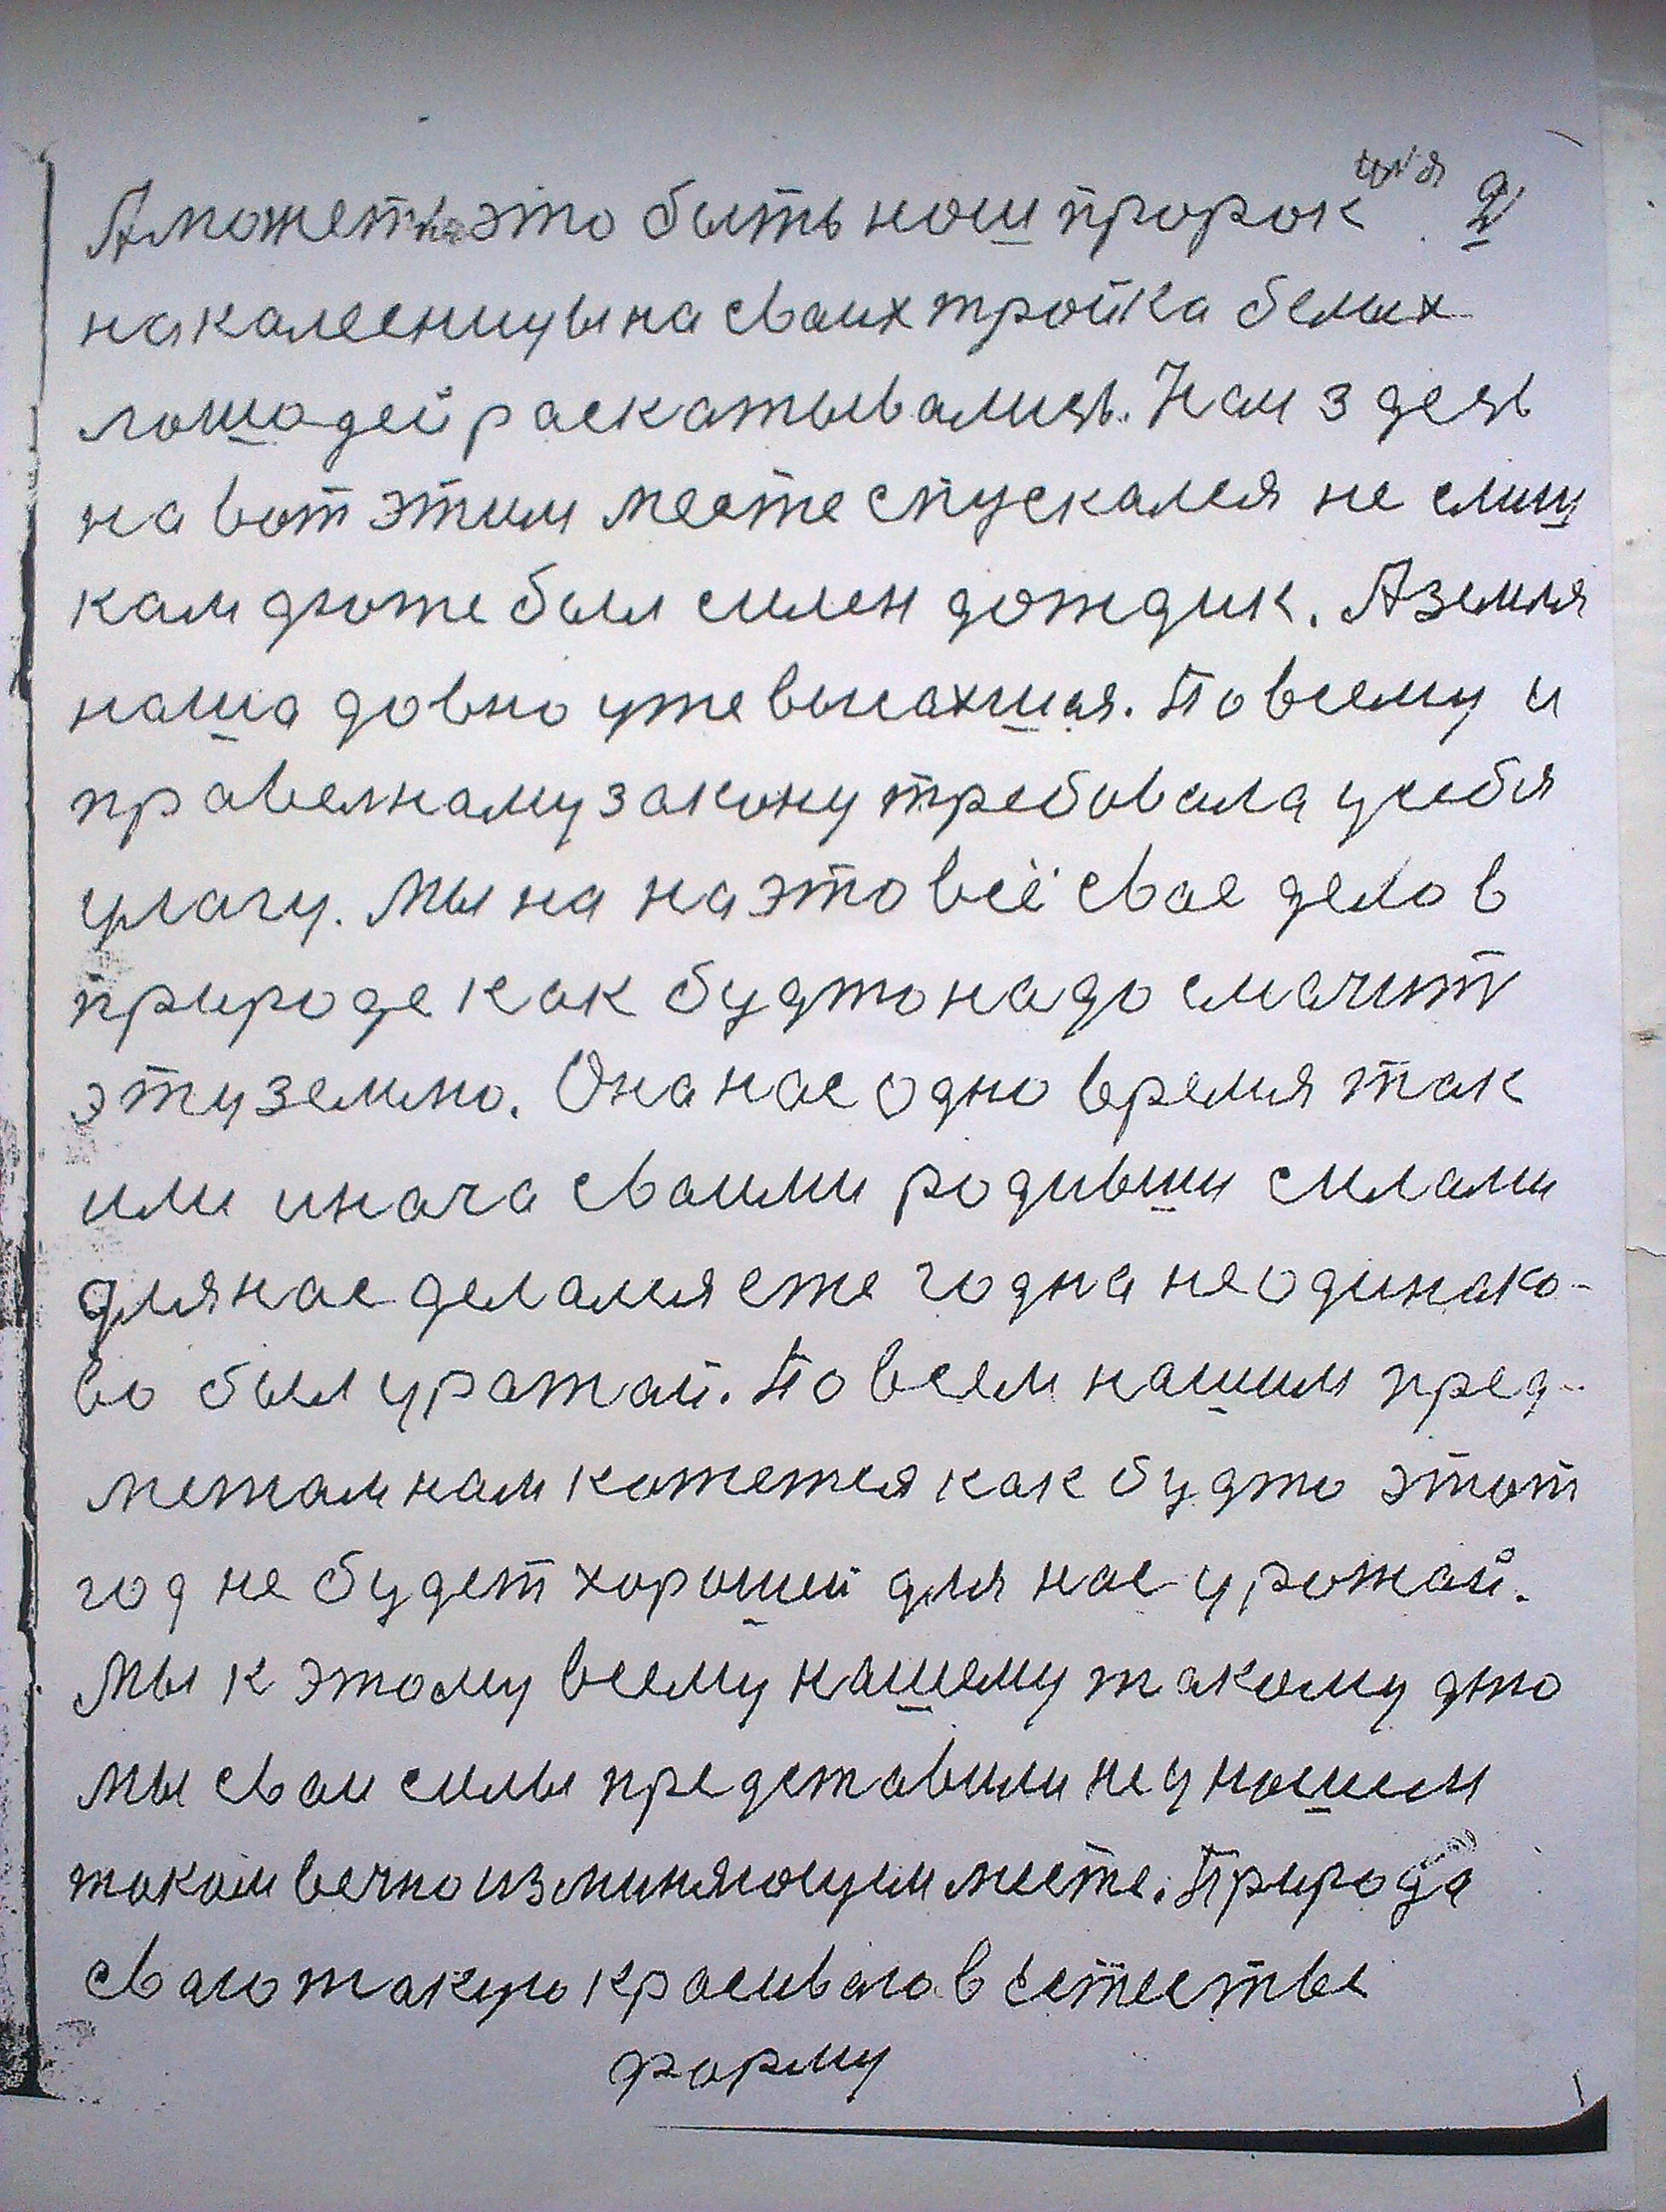 А может это быть наш пророк Илья 2
на калесницы на сваих тройка белых
лошадей раскатывались. Нам здесь
на вот этим месте спускался не слиш
кам дюже был силен дождик. А земля
наша довно уже высахшая. По всему и
правелнаму закону требовала у себя
улагу. Мы на на это всё свае дело в
природе как будто надо смачит
эту землю. Она нас одно время так
или инача сваими родивши силами
для нас делался еже годна неодинако-
во был уражай. По всем нашим пред-
метам нам кажется как будто этот
год не будет хороший для нас урожай.
Мы к этому всему нашему такому дню
мы сваи силы представили не у нашем
таком вечно изминяющем месте. Природа
сваю такую красиваю в естестве
форму